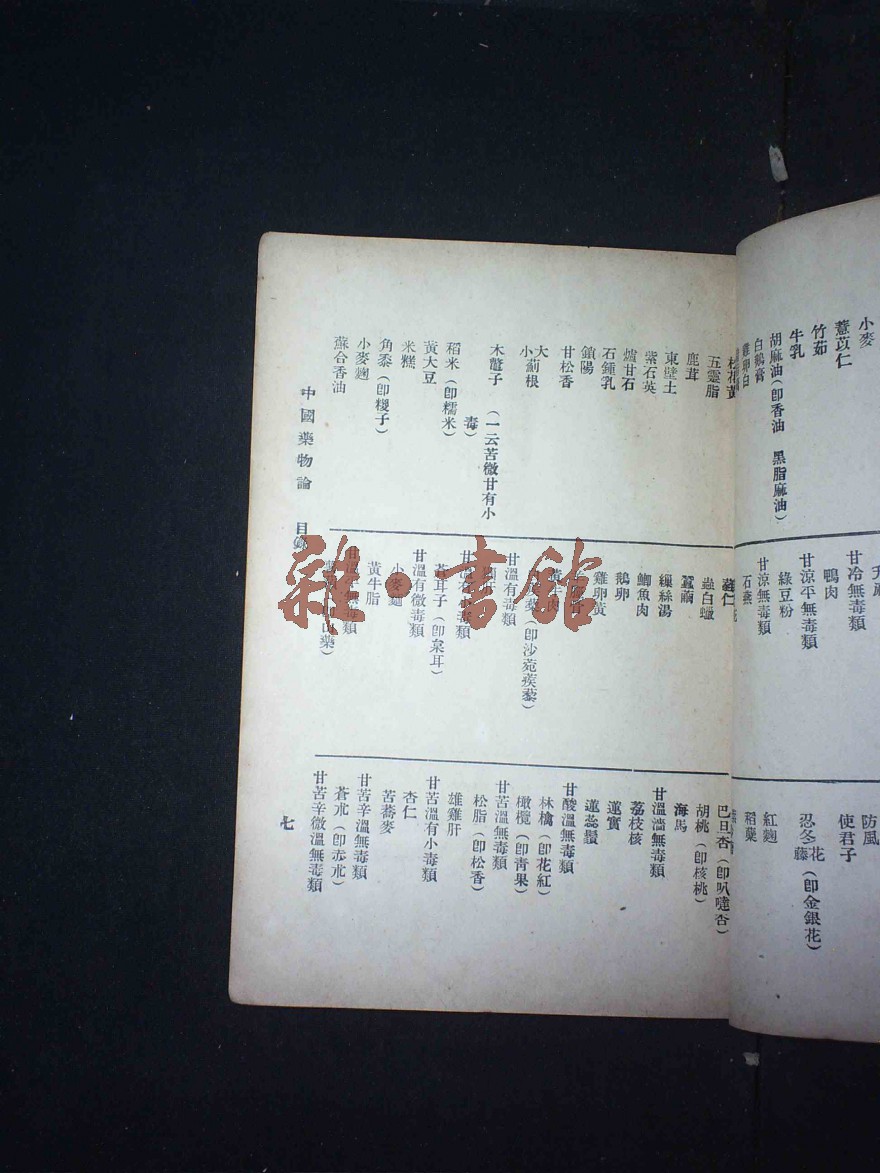 小麥
薏苡仁
竹茹
牛乳
胡麻油(即香油 黑脂麻油)
白鵝膏
雞卵白
甘冷無毒類
鴨肉
甘涼平無毒類
綠豆粉
甘涼無毒類
石燕
防風
使君子
忍冬花藤(即金銀花)
紅麴
稻藁
五靈脂
鹿茸
東壁土
紫石英
爐甘石
石鍾乳
鎖陽
甘松香
大小薊根
木虌子 (一云苦微甘有小毒)
稻米(即糯米)
黃大豆
米糕
角黍(即糉子)
小麥麴
蘇合香油
蕤仁
蟲白蠟
蠶繭
繅絲湯
鯽魚肉
鵝卵
雞卵黃
黃牛肉
(即沙苑蒺藜)
甘溫有毒類
甘溫有小毒類
蒼耳子(即枲耳)
甘溫有微毒類
小麥麵
黃牛脂
甘溫平無毒類
巴旦杏(即叭噠杏)
胡桃(即核桃)
海馬
甘溫濇無毒類
荔枝核
蓮實
蓮蕊鬚
甘酸溫無毒類
林檎(即花紅)
橄欖(即青果)
甘苦溫無毒類
松脂(即松香)
雄雞肝
甘苦溫有小毒類
杏仁
苦蕎麥
甘苦辛溫無毒類
蒼朮(即赤朮)
甘苦辛微溫無毒類
中國藥物論 目錄
七
雜·書館